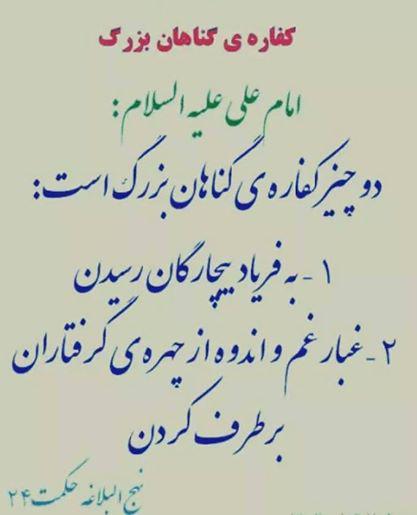 کفاره ی گناهان بزرگ
امام علی علیه السلام:
دو چیز کفاره ی گناهان بزرگ است:
۱ - به فریاد بیچارگان رسیدن
۲ - غبار غم و اندوه از چهره ی گرفتاران
برطرف کردن
نهج البلاغه حکمت ۲۴